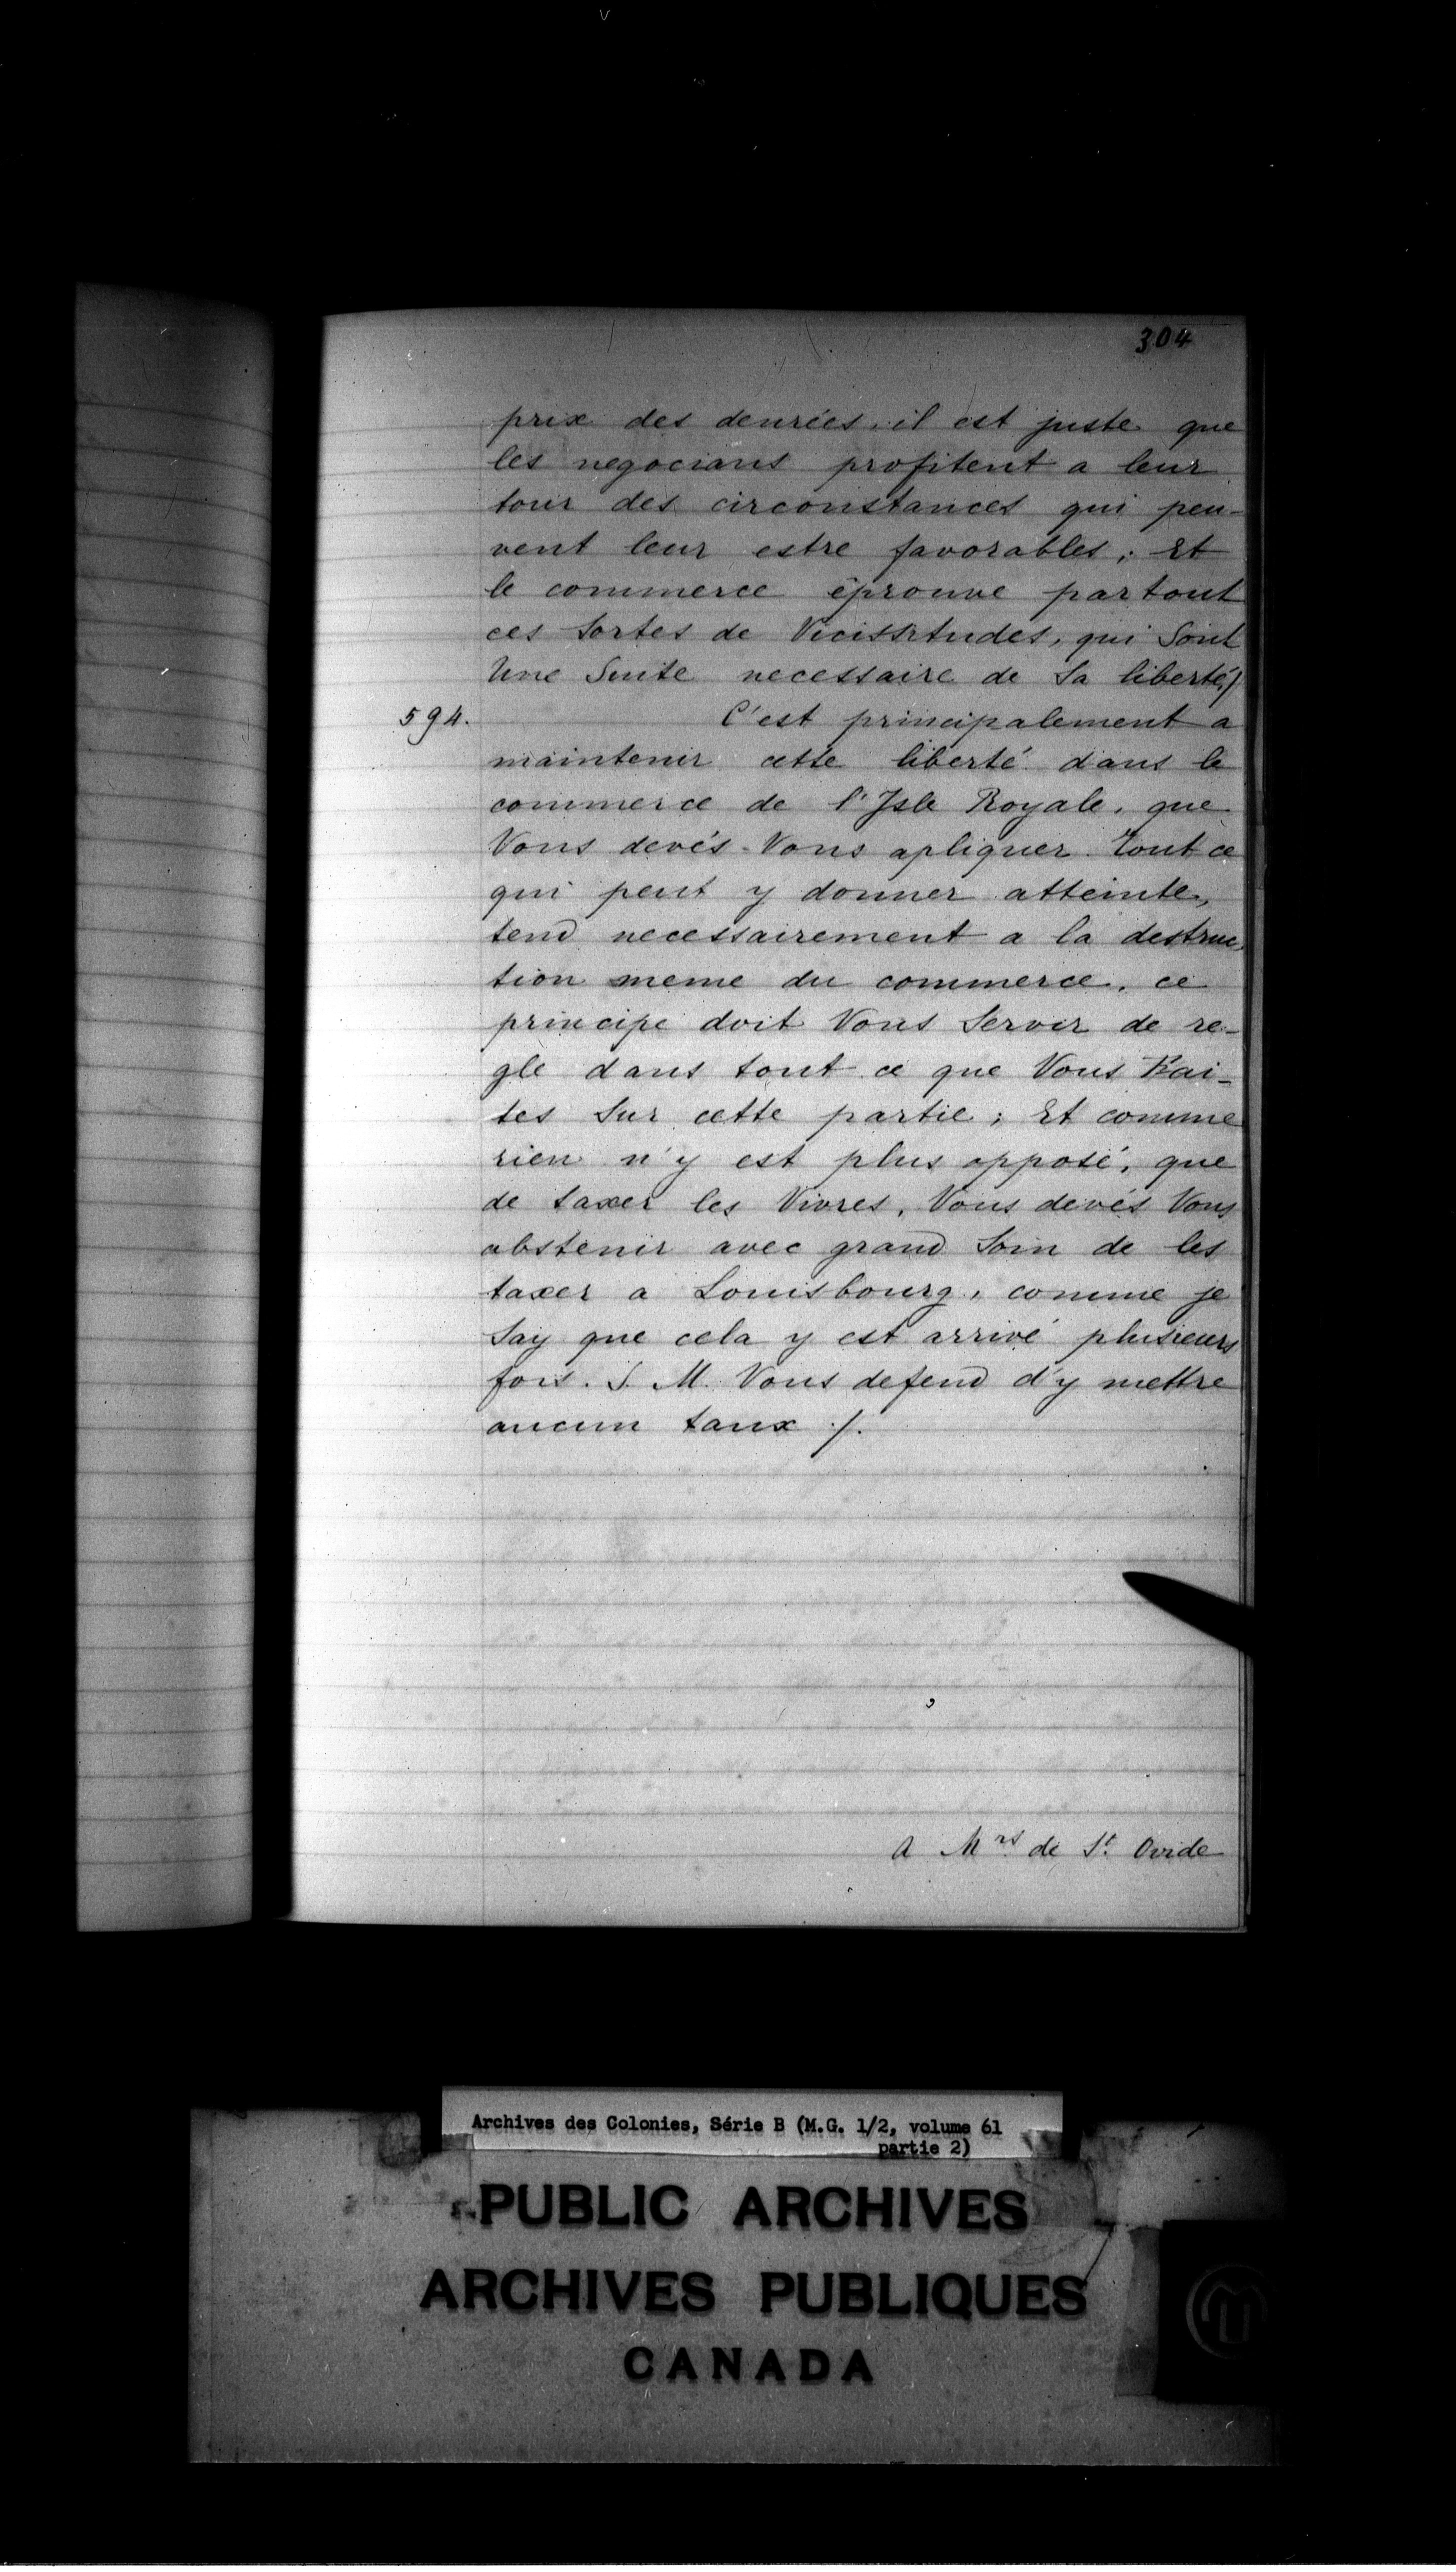 304
prix des denrées, il est juste que
les negocians profitent a leur
tour des circonstances qui peu-
vent leur estre favorables; Et
le commerce éprouve partout
ces Sortes de Vicissitudes, qui Sont
Une Suite necessaire de Sa liberté/
594. C'est principalement a
maintenir cette liberté dans le
commerce de l'Isle Royale, que
Vous devés Vous apliquer. Tout ce
qui peut y donner atteinte,
tend necessairement a la destruc-
tion meme du commerce. ce
principe doit Vous Servir de re-
gle dans tout ce que Vous Fai-
tes Sur cette partie; Et comme
rien n'y est plus opposé, que
de taxer les Vivres, Vous devés Vous
abstenir avec grand Soin de les
taxer a Louisbourg, comme je
Say que cela y est arrivé plusieurs
fois. S. M. Vous defend d'y mettre
aucun taux ./.
A Mrs de St. Ovide
Archives des Colonies, Série B (M.G. 1/2, volume 61
partie 2)
PUBLIC ARCHIVES
ARCHIVES PUBLIQUES
CANADA